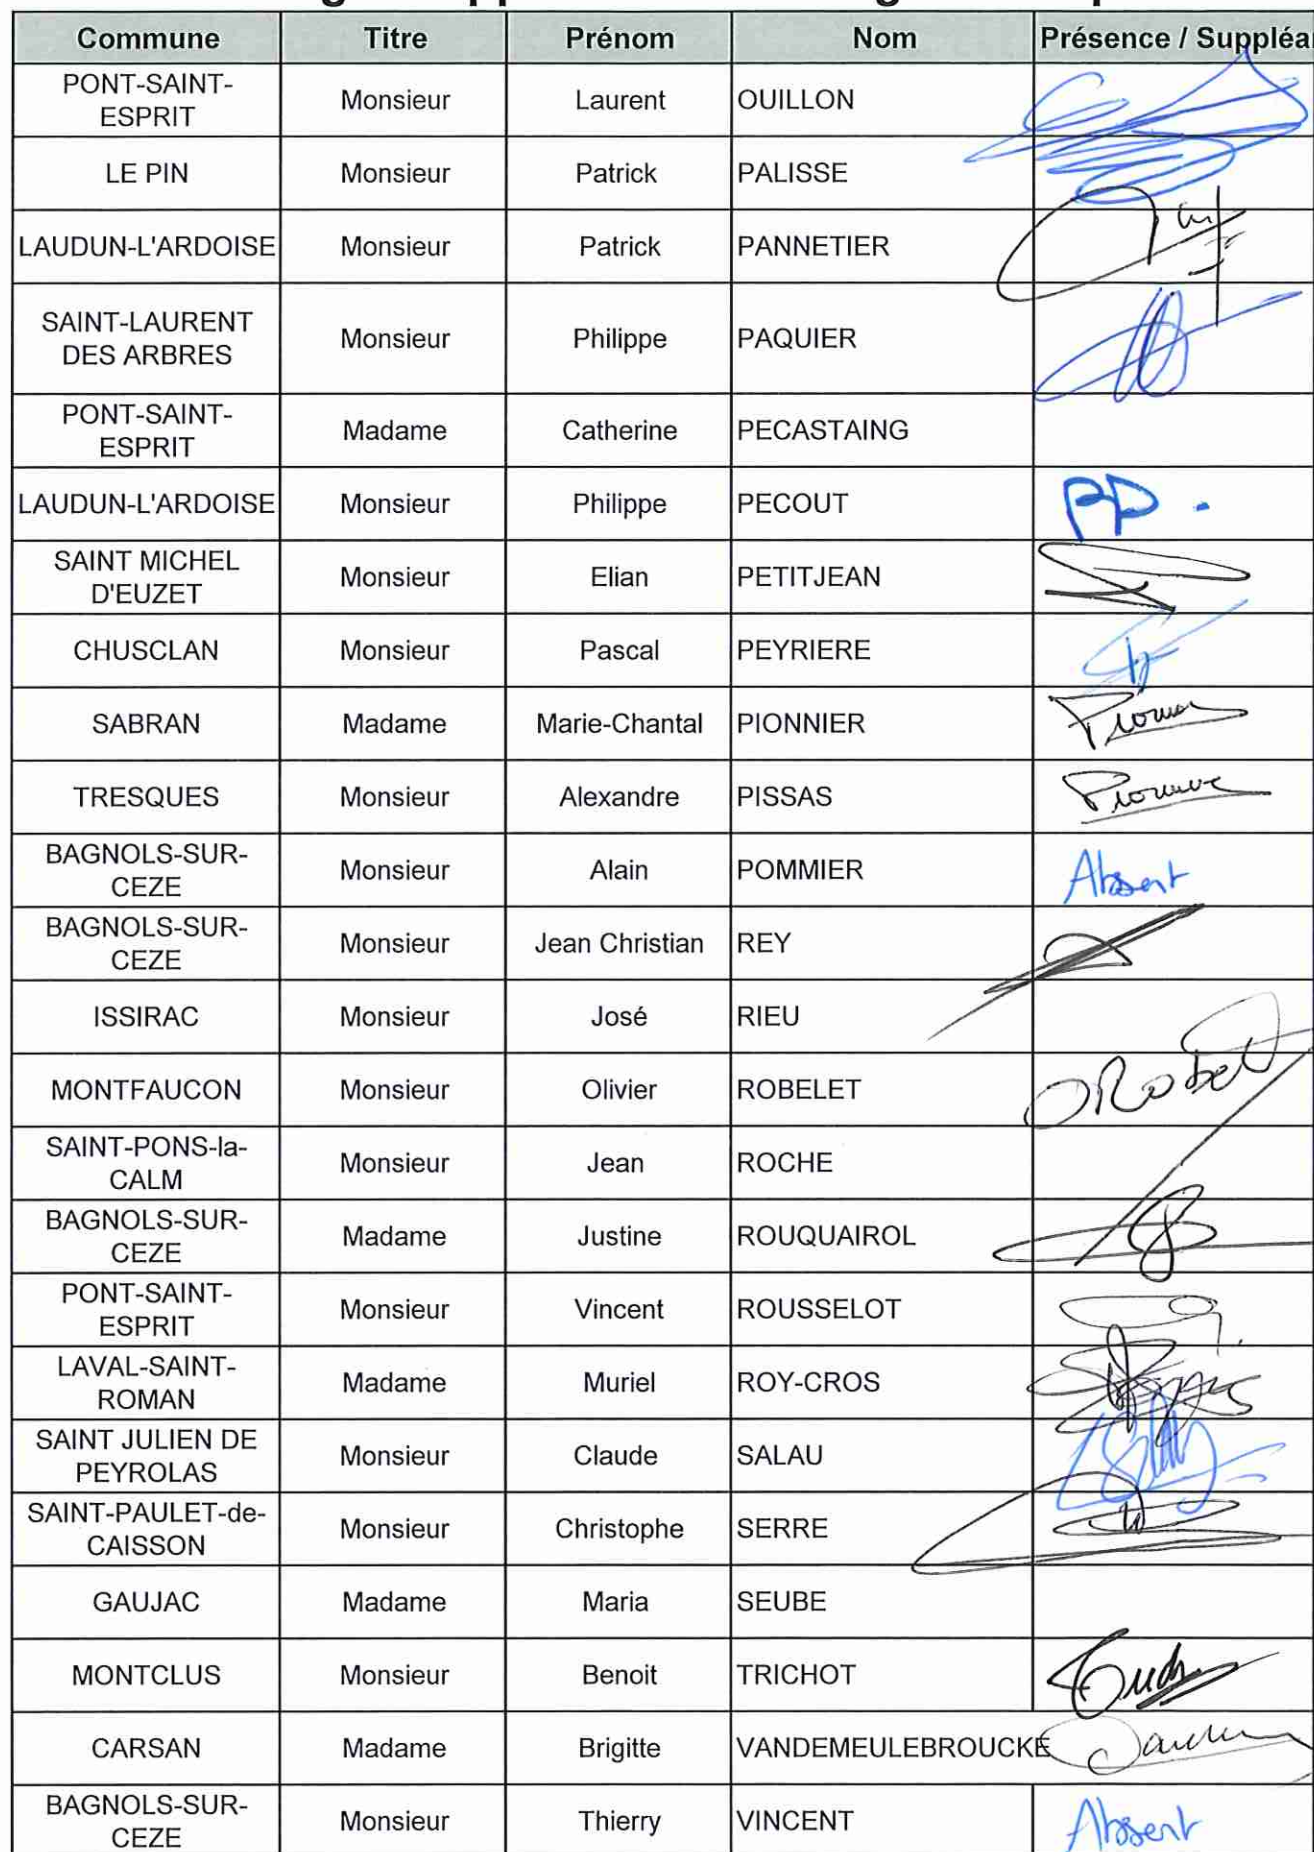 Commune Titre Prénom Nom Présence / Suppléa
PONT-SAINT-
ESPRIT Monsieur Laurent OUILLON
LE PIN Monsieur Patrick PALISSE
LAUDUN-L'ARDOISE Monsieur Patrick PANNETIER
SAINT-LAURENT
DES ARBRES Monsieur Philippe PAQUIER
PONT-SAINT-
ESPRIT Madame Catherine PECASTAING
LAUDUN-L'ARDOISE Monsieur Philippe PECOUT PP.
SAINT MICHEL
D'EUZET Monsieur Elian PETITJEAN
CHUSCLAN Monsieur Pascal PEYRIERE
SABRAN Madame Marie-Chantal PIONNIER
TRESQUES Monsieur Alexandre PISSAS
BAGNOLS-SUR-
CEZE Monsieur Alain POMMIER Absent
BAGNOLS-SUR-
CEZE Monsieur Jean Christian REY
ISSIRAC Monsieur José RIEU
MONTFAUCON Monsieur Olivier ROBELET
SAINT-PONS-la-
CALM Monsieur Jean ROCHE
BAGNOLS-SUR-
CEZE Madame Justine ROUQUAIROL
PONT-SAINT-
ESPRIT Monsieur Vincent ROUSSELOT
LAVAL-SAINT-
ROMAN Madame Muriel ROY-CROS
SAINT JULIEN DE
PEYROLAS Monsieur Claude SALAU
SAINT-PAULET-de-
CAISSON Monsieur Christophe SERRE
GAUJAC Madame Maria SEUBE
MONTCLUS Monsieur Benoit TRICHOT
CARSAN Madame Brigitte VANDEMEULEBROUCKE
BAGNOLS-SUR-
CEZE Monsieur Thierry VINCENT Absent